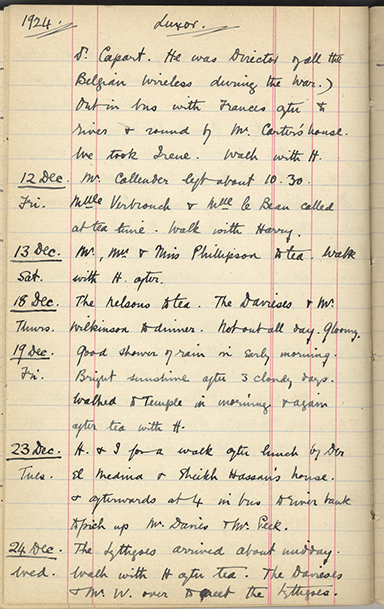 1924. Luxor.
Dr. Capart. He was Director of all the
Belgian Wireless during the War.)
Out in bus with Frances after to
river & round by Mr. Carter's house.
We took Irene. Walk with H.
12 Dec. Mr. Callender left about 10.30.
Fri. Mdlle Verbrouck & Mdlle le Beau called
at tea time. Walk with Harry.
13 Dec. Mr., Mrs & Miss Phillipson to tea. Walk
Sat. with H. after.
18 Dec. The Nelsons to tea. The Davieses & Mr.
Thurs. Wilkinson to dinner. Not out all day. Gloomy.
19 Dec. Good shower of rain in early morning.
Fri. Bright sunshine after 3 cloudy days.
Walked to Temple in morning & again
after tea with H.
23 Dec. H. & I for a walk after lunch by Der
Tues. el Medina & Sheikh Hassan's house.
& afterwards at 4 in bus to river bank
to pick up Mr. Davis & Mr. Peek.
24 Dec. The Lythgoes arrived about midday.
Wed. Walk with H after tea. The Davieses
& Mr. W. over to meet the Lythgoes.